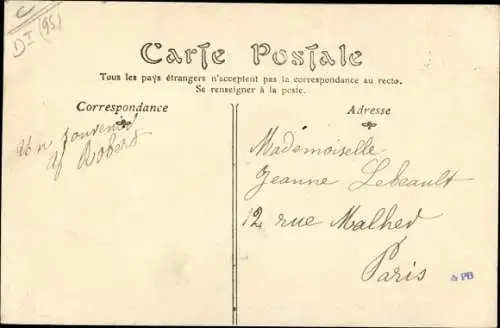 C
DI (95)
Carte Postale
Tous les pays étrangers n'acceptent pas la correspondance au recto.
Se renseigner à la poste.
Correspondance
Un souvenir
Robert
Adresse
Mademoiselle
Jeanne Lebeault
12 rue Malher
Paris
& PB